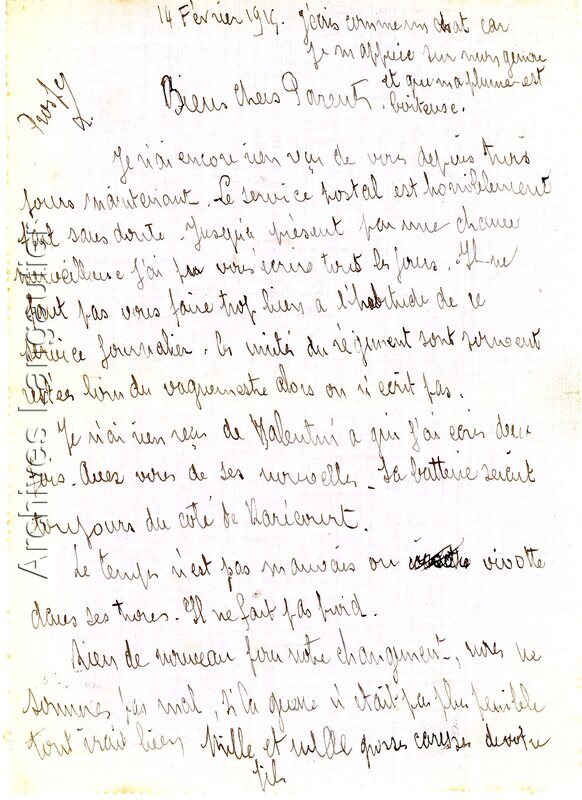 14 Février 1915. j'écris comme un chat car
je m'appuie sur mes genoux
et que ma plume est
boiteuse.
Biens chers Parents.
Je n'ai encore rien reçu de vous depuis trois
jours maintenant. Le service postal est horriblement
fait sans doute. Jusqu'à présent par une chance
merveilleuse j'ai pu vous écrire tous les jours. Il ne
faut pas vous faire trop bien à l'habitude de ce
service journalier. Les unités du régiment sont souvent
loin du vaguemestre alors on n'écrit pas.
Je n'ai rien reçu de Valentin à qui j'ai écris deux
fois. Avez vous de ses nouvelles. Sa batterie serait
toujours du coté de
Le temps n'est pas mauvais on vivotte
dans ses trous. Il ne fait pas froid.
Rien de nouveau pour notre changement, nous ne
sommes pas mal, si la guerre n'était pas plus pénible
tout irait bien Mille et mille grosses caresses de votre
fils
Archives Langaudier